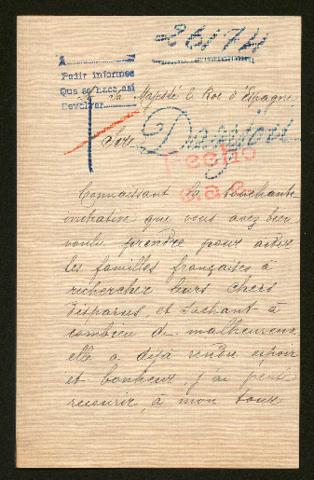 26174
A
Pedir informes
Que se haga así
Devolver
Sa Majesté le Roi d'Espagne
Sire
Hecho
Connaissant la touchante
initiative que vous avez bien
voulu prendre pour aider
les familles françaises à
rechercher leurs chers
disparus, et sachant à
combien de malheureux
elle a déjà rendu espoir
et bonheur, j'ai pensé
recourir, à mon tour